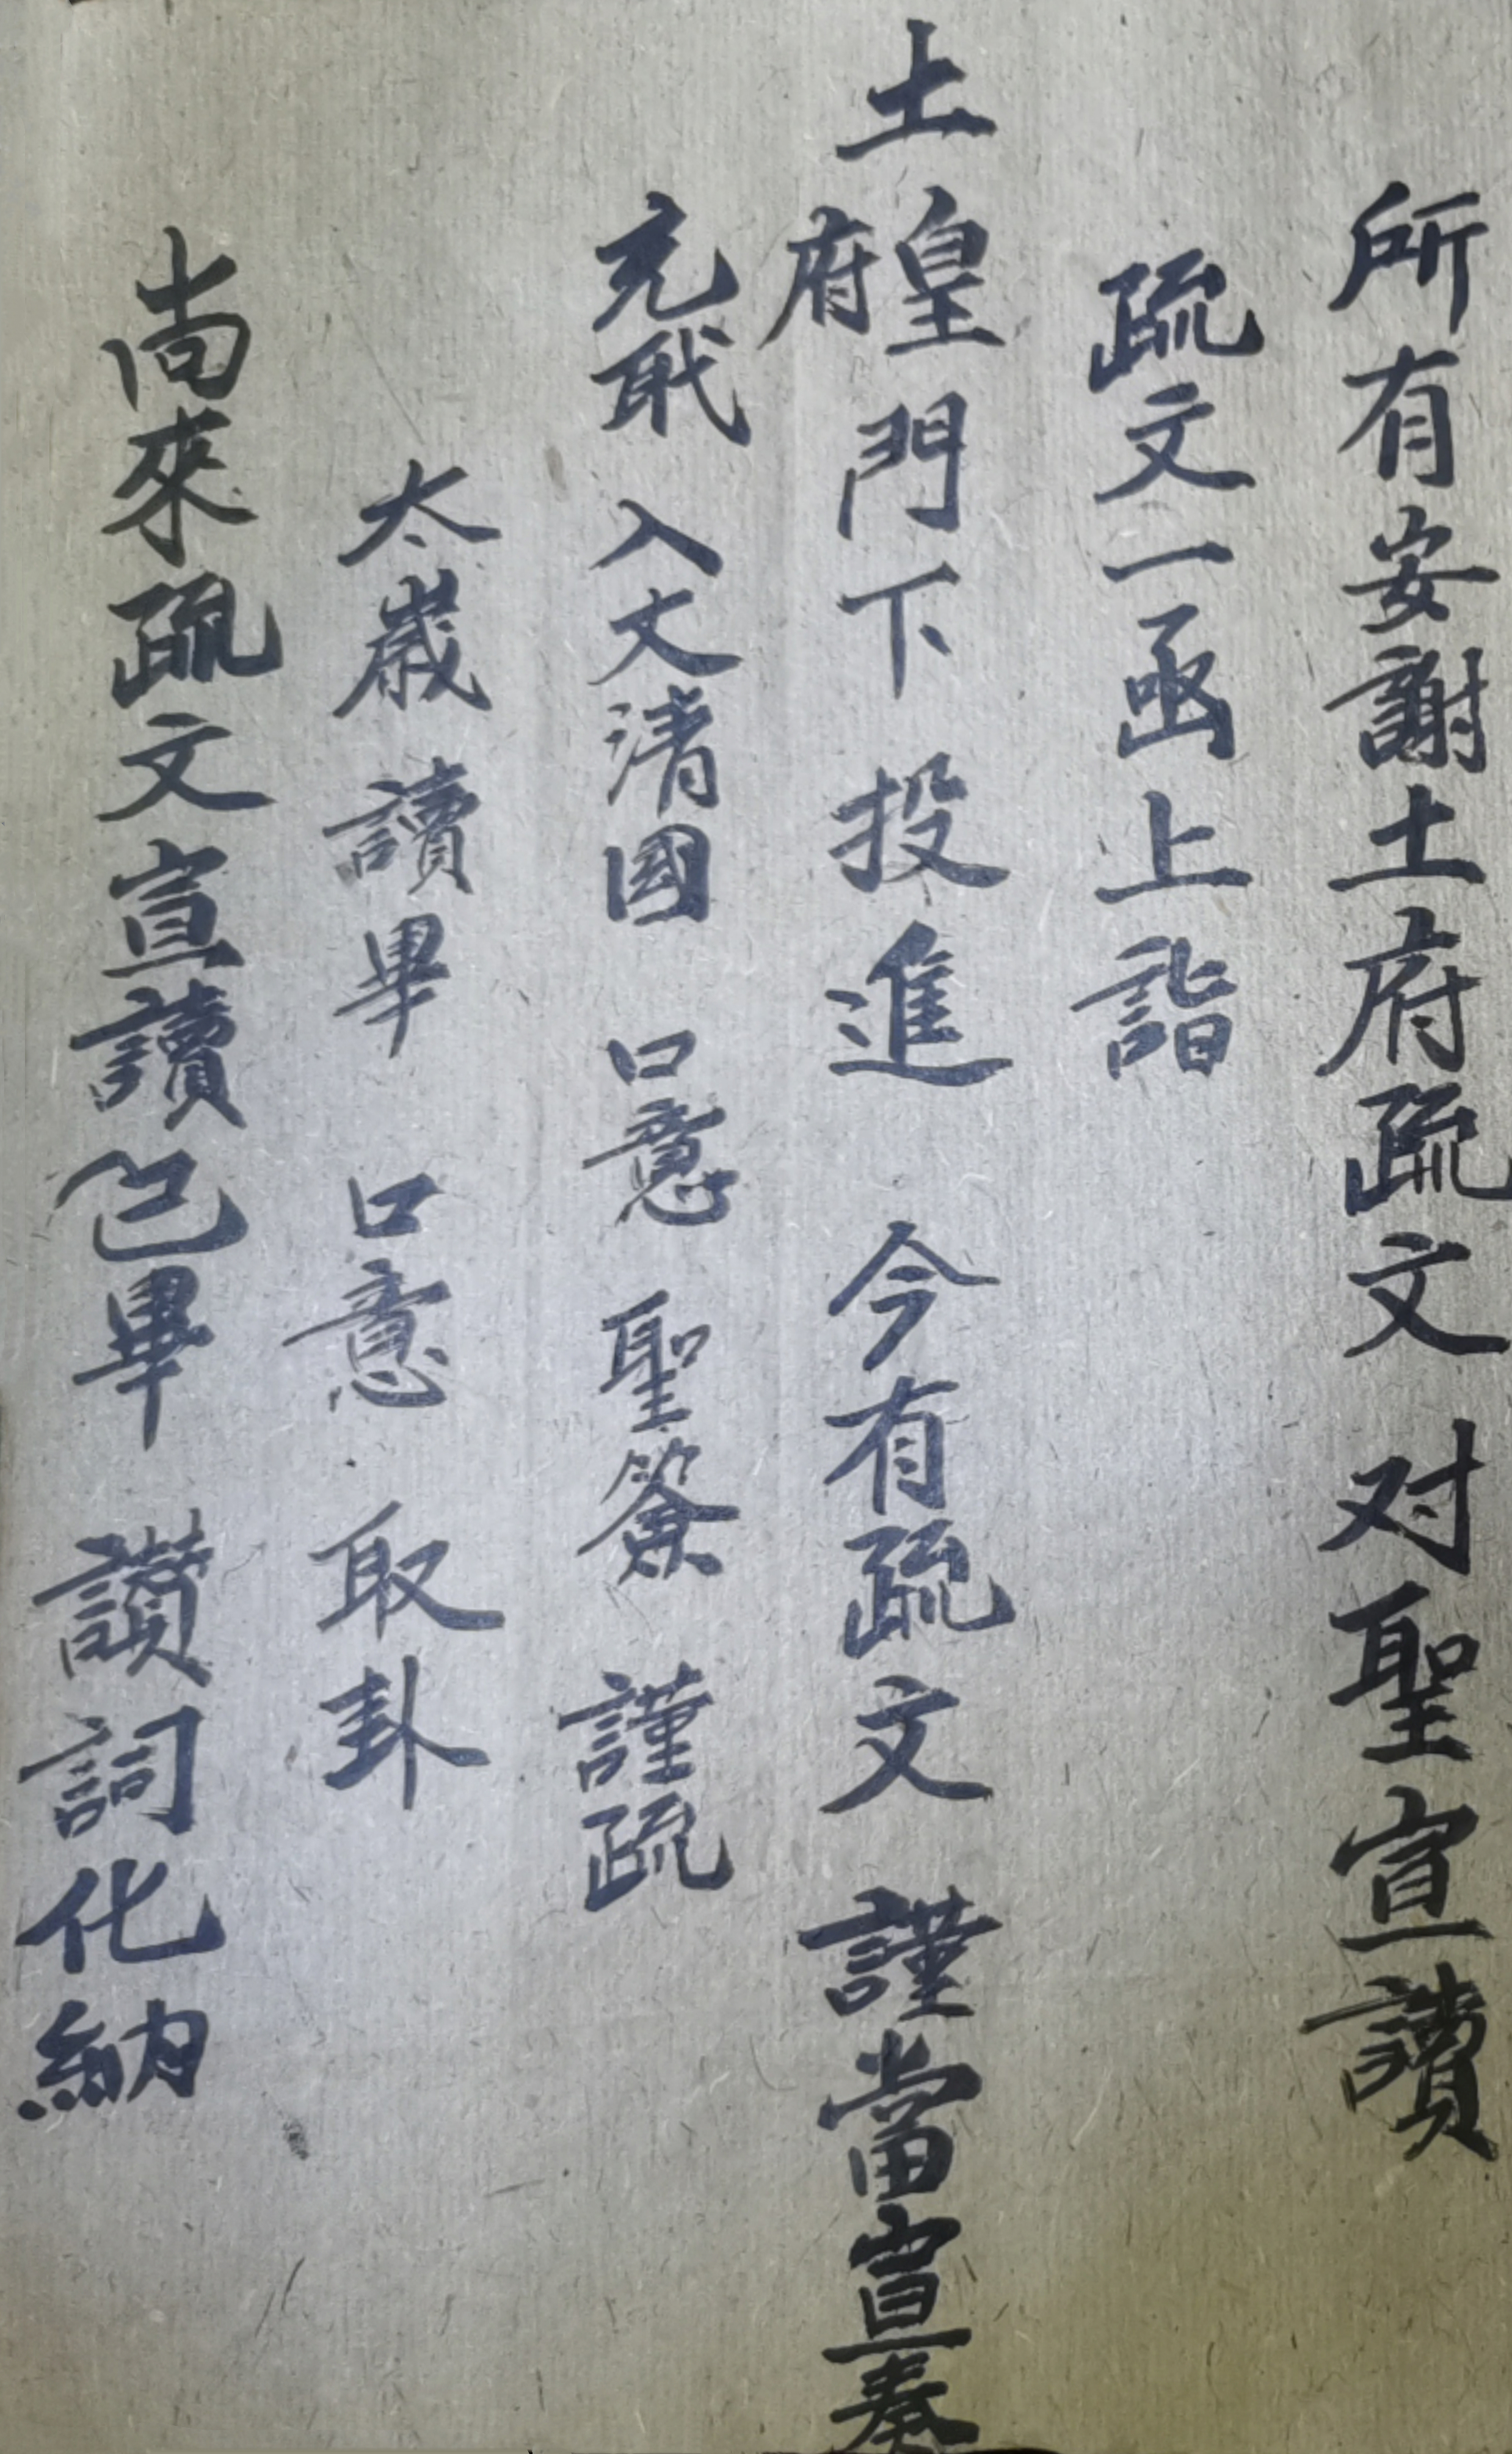 所有安謝土府疏文对聖宣讀
疏文一函上詣
土皇府門下投進今有疏文謹當宣奏
入文清國口意聖簽謹疏
太歲讀畢口意取卦
尚來疏文宣讀已畢讃詞化納